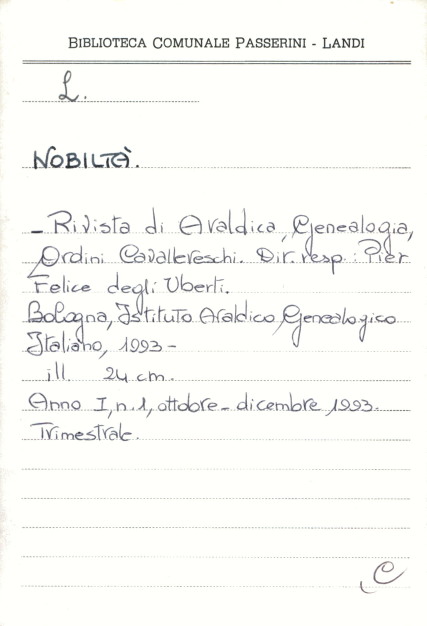 BIBLIOTECA COMUNALE PASSERINI - LANDI
L.
NOBILTÀ.
- Rivista di Araldica, Genealogia,
Ordini Cavallereschi. Dir. resp.: Pier
Felice degli Uberti.
Bologna, Istituto Araldico Genealogico
Italiano, 1993 -
ill. 24 cm.
Anno I, n. 1, ottobre - dicembre 1993.
Trimestrale.
C